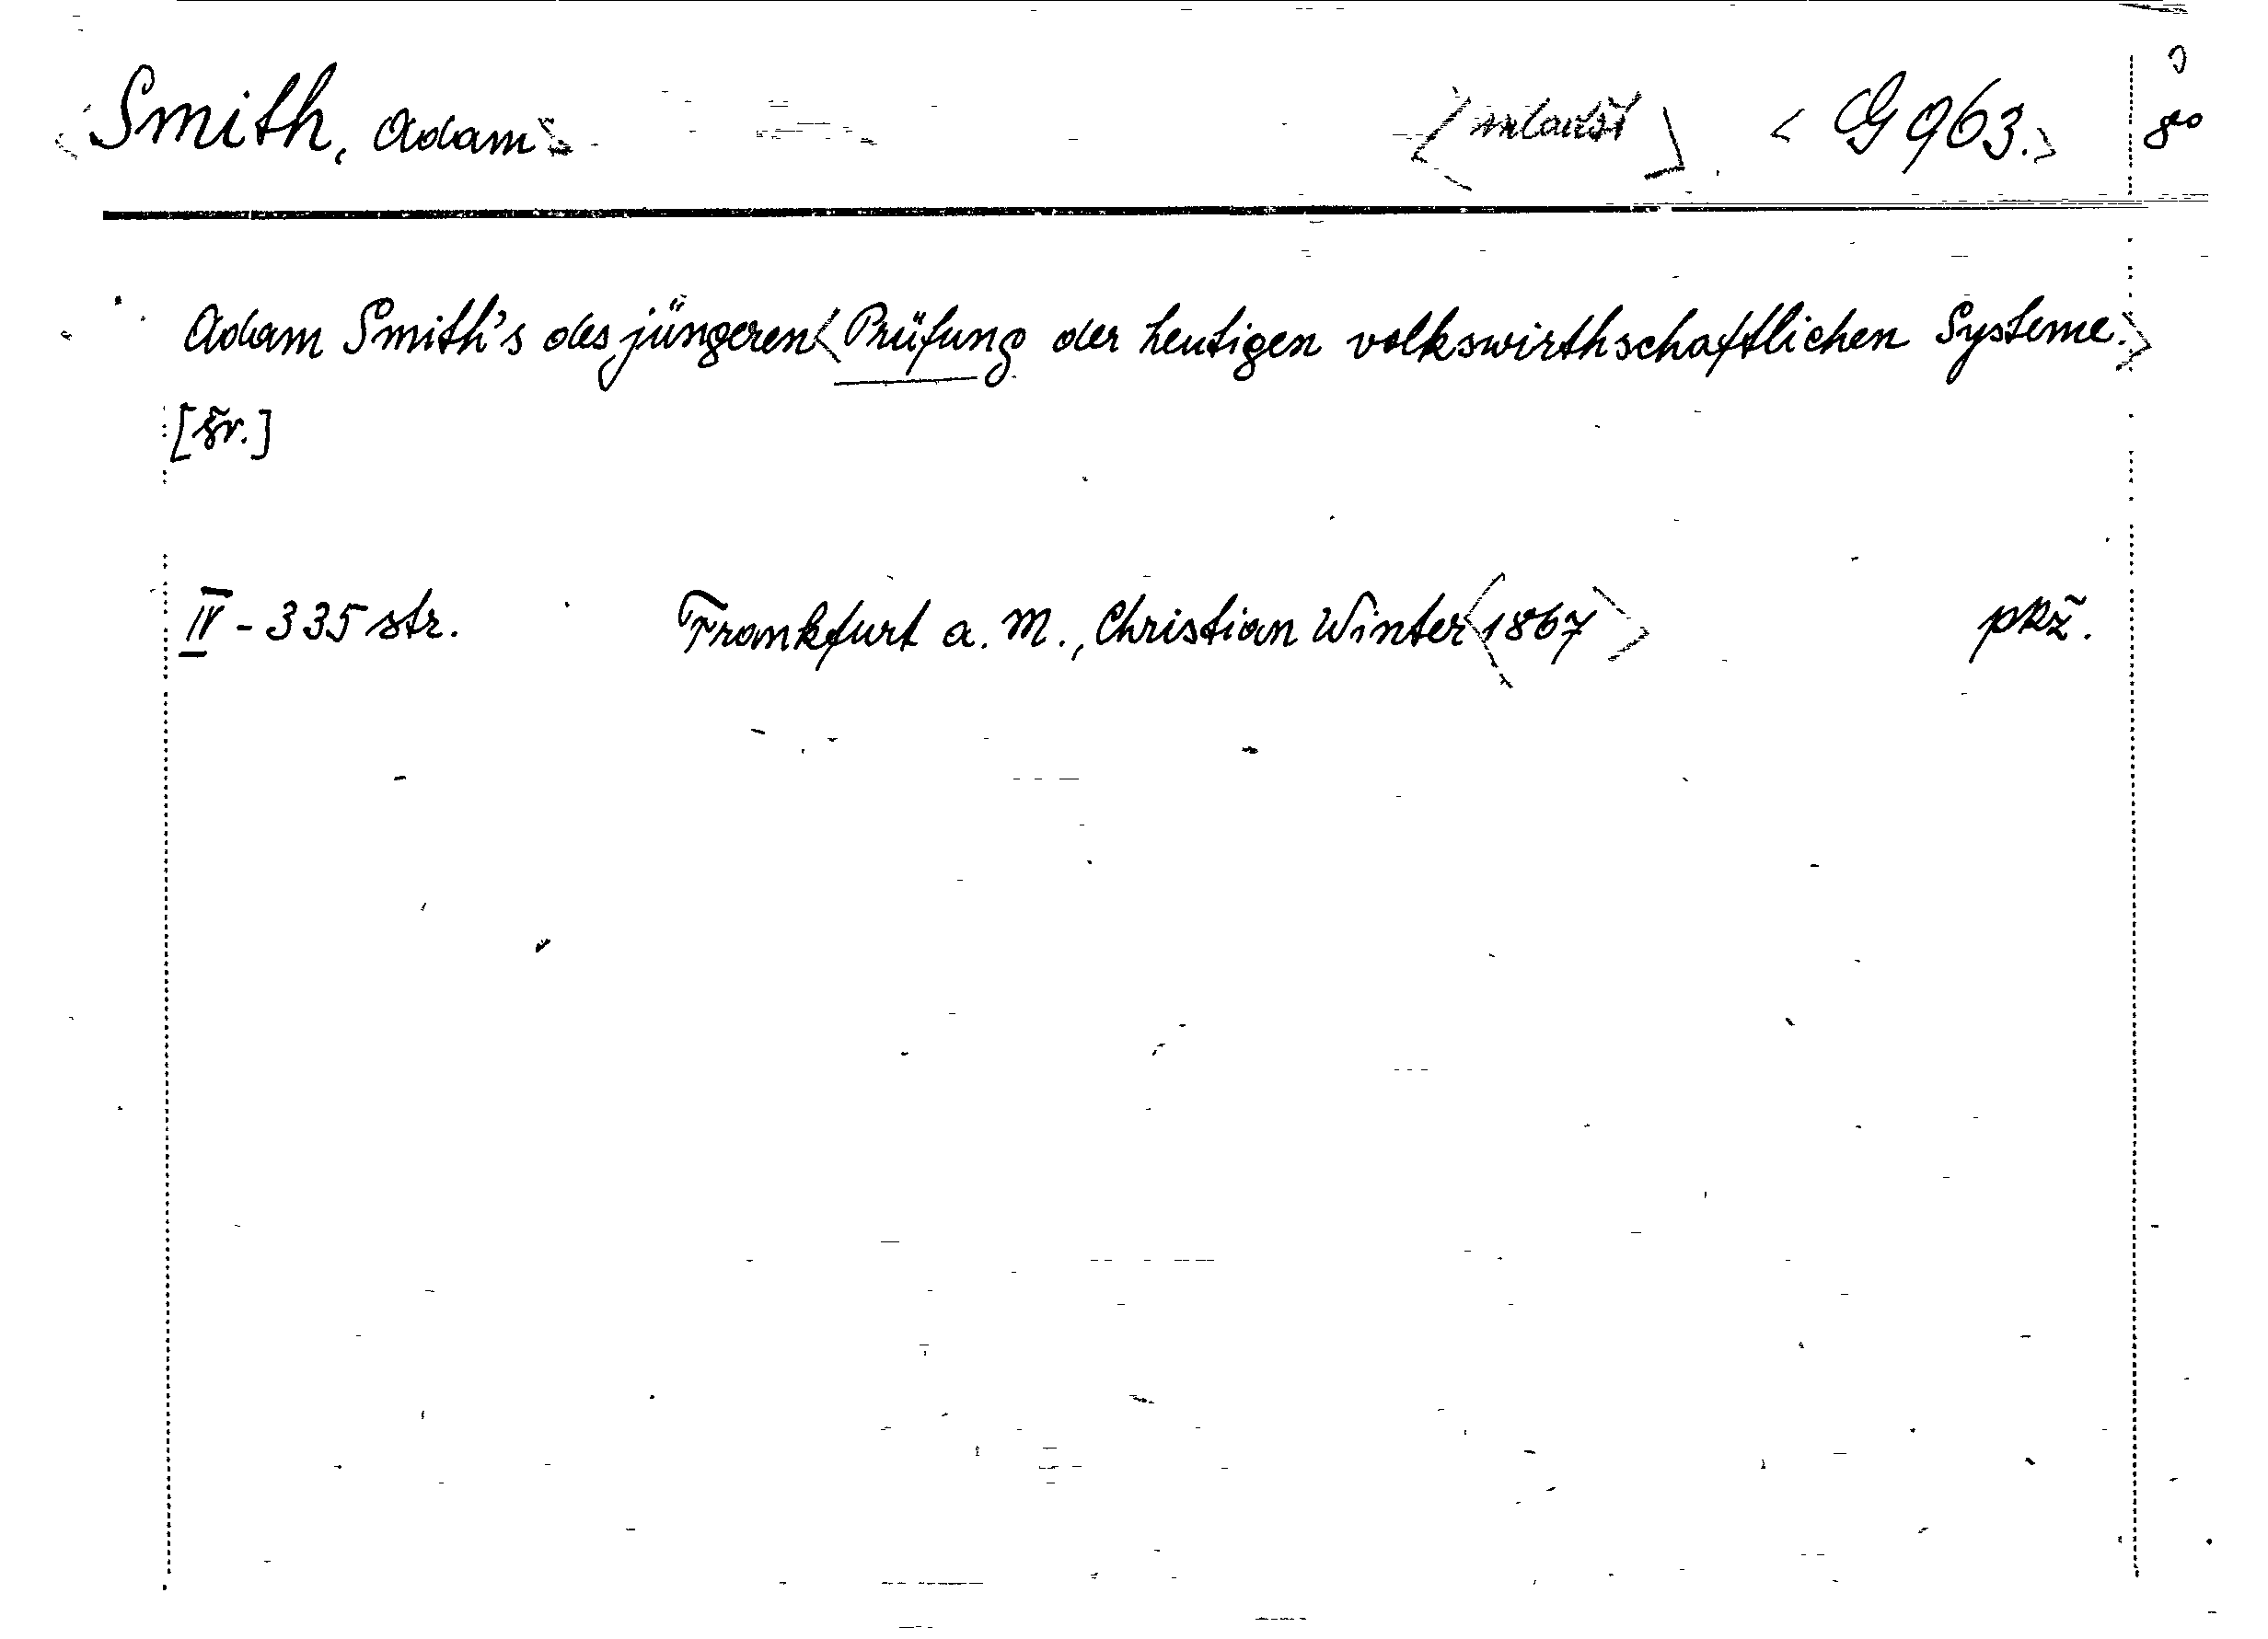 <Smith, Adam> <mladší> <G 963.> 8°
Adam Smith's des jüngeren <Prüfung der heutigen volkswirthschaftlichen Systeme.>
[šv.]
IV - 335 str. Frankfurt a. M., Christian Winter <1867> pRž.